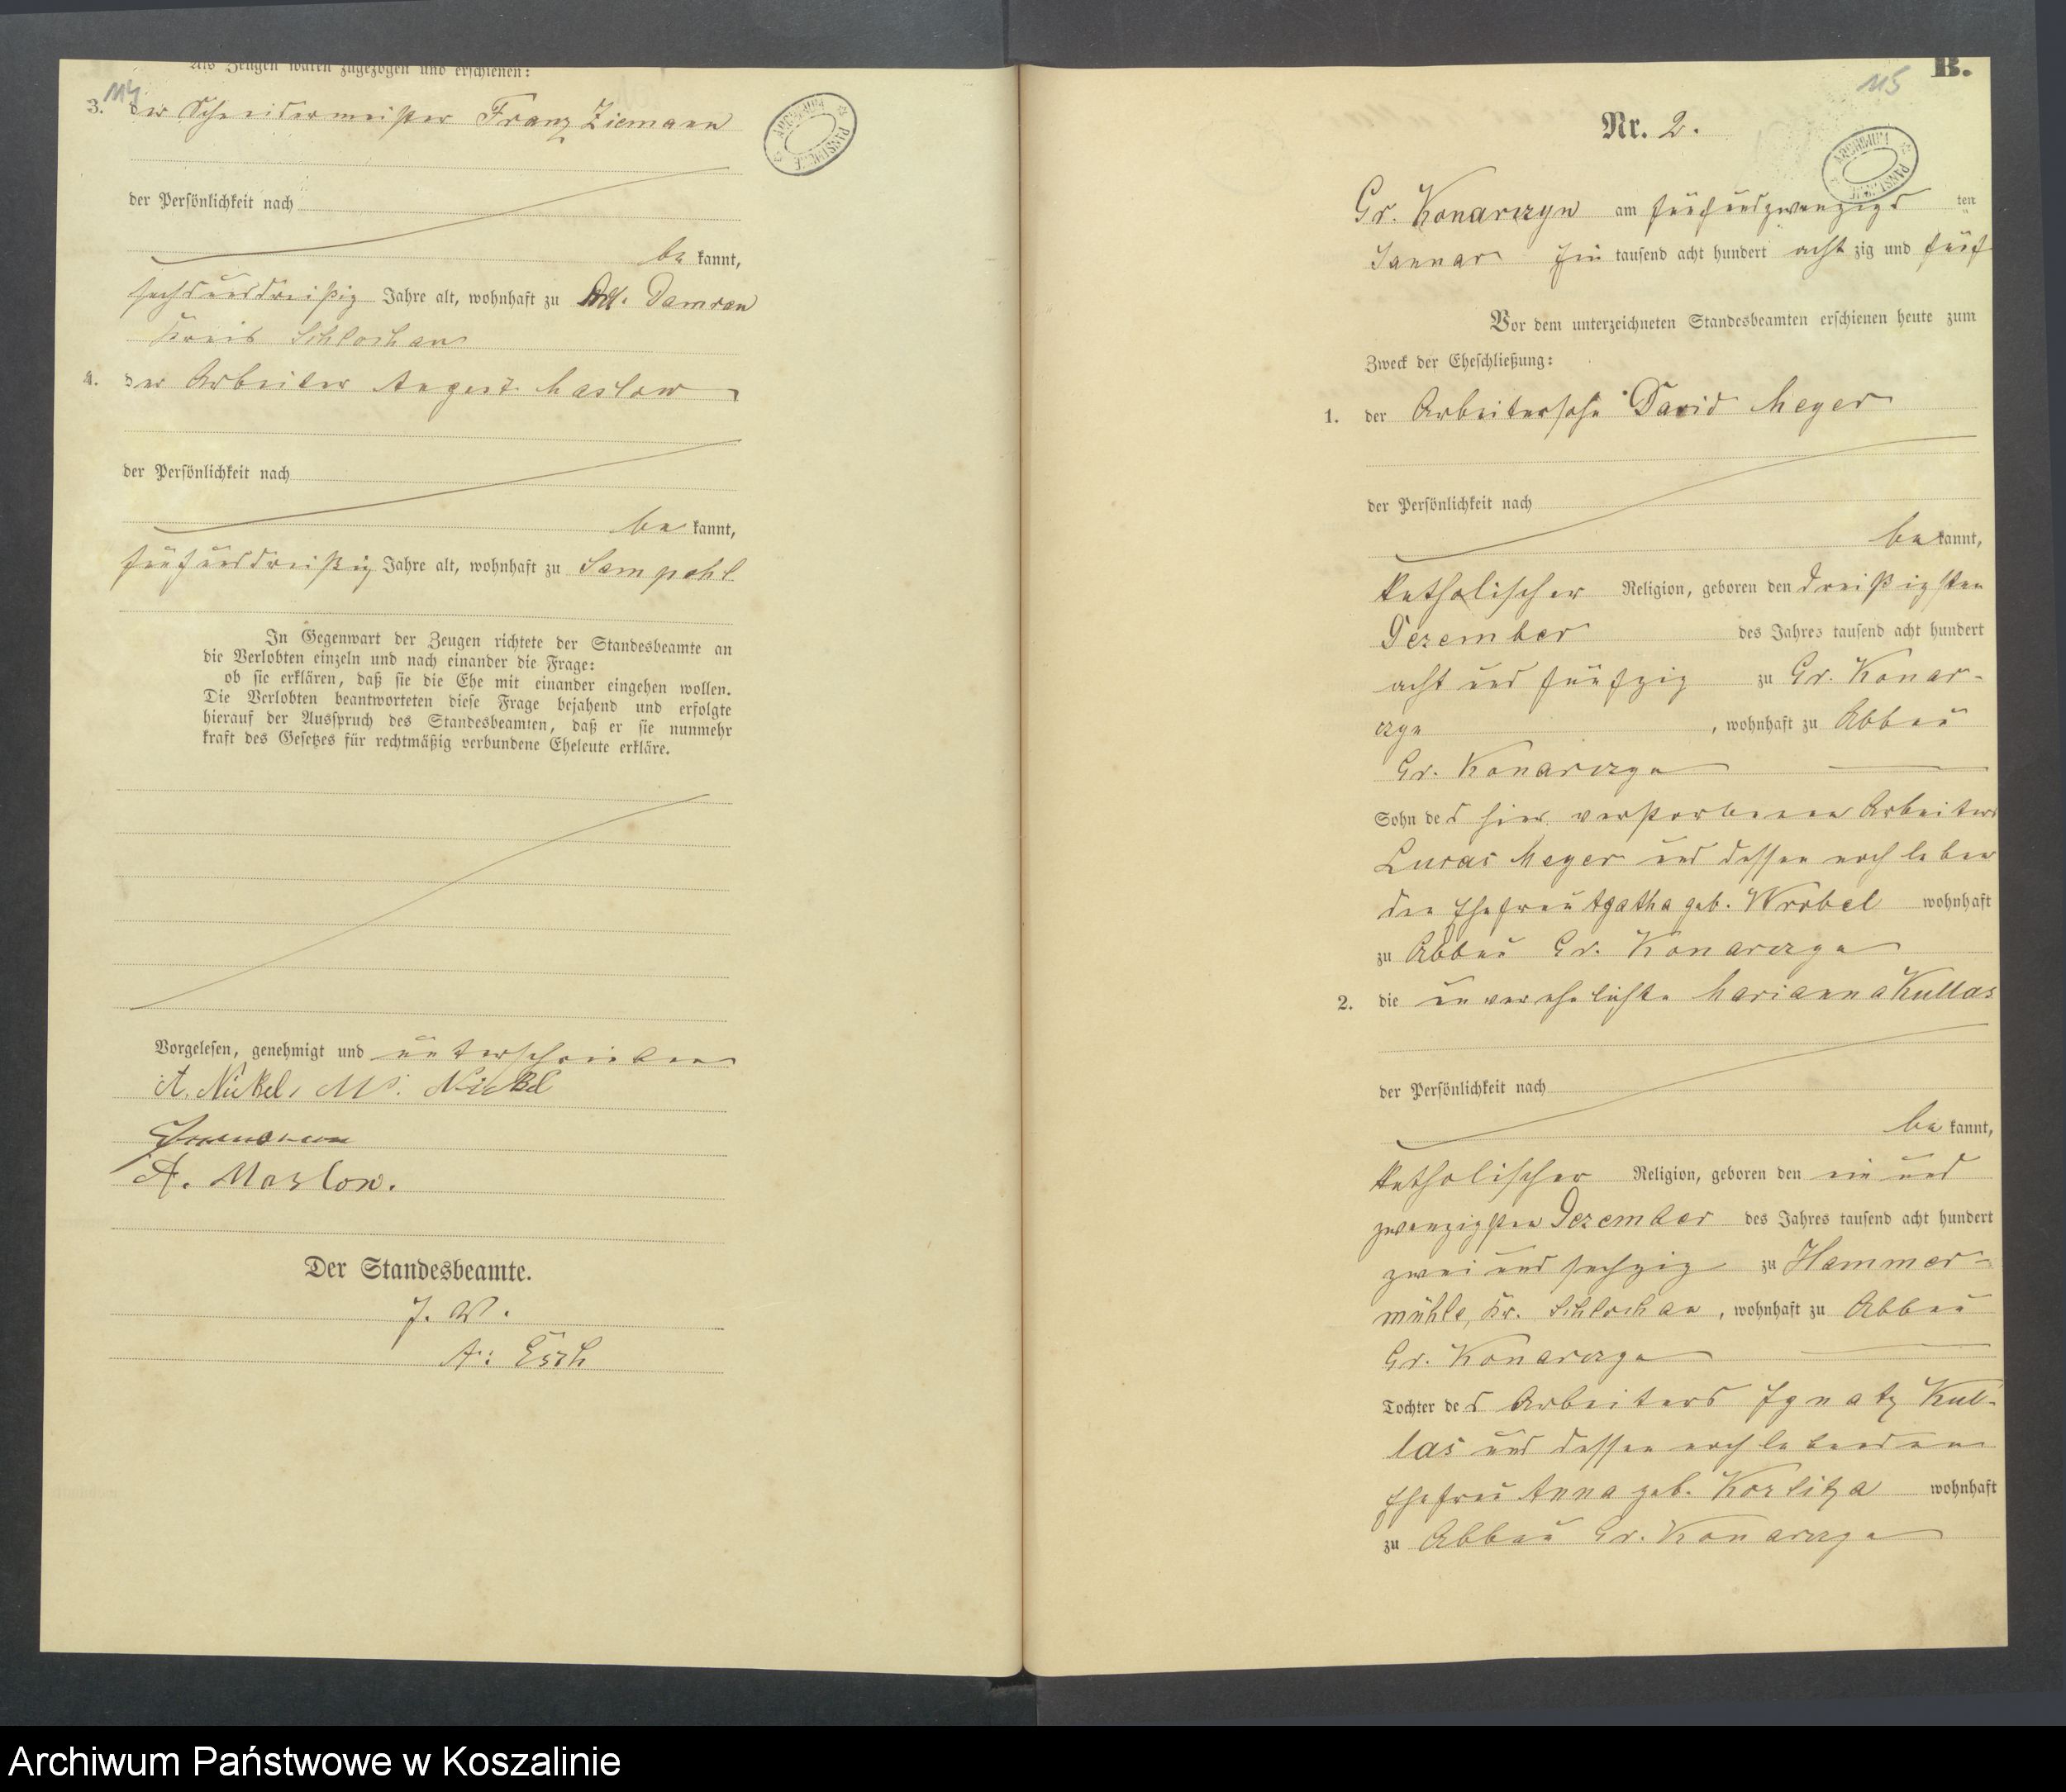 Als Zeugen waren zugezogen und erschienen:
114
3. der Schneidermeister Franz Ziemann
der Persönlichkeit nach
be kannt,
sechsunddreißig Jahre alt, wohnhaft zu Adl. Damran
Kreis Schlochau
4. der Arbeiter August Maslow
der Persönlichkeit nach
be kannt,
fünfunddreißig Jahre alt, wohnhaft zu Sampohl
In Gegenwart der Zeugen richtete der Standesbeamte an
die Verlobten einzeln und nach einander die Frage:
ob sie erklären, daß sie die Ehe mit einander eingehen wollen.
Die Verlobten beantworteten diese Frage bejahend und erfolgte
hierauf der Ausspruch des Standesbeamten, daß er sie nunmehr
kraft des Gesetzes für rechtmäßig verbundene Eheleute erkläre.
Vorgelesen, genehmigt und unterschrieben
A. Nickel, M. Nickel
A. Maslow.
Der Standesbeamte.
J. V.
A. Esch
ARCHIWUM PAŃSTWOWE
B.
115
Nr. 2.
ARCHIWUM PAŃSTWOWE
Gr. Konarczyn am fünfundzwanzigs ten
Januar Ein tausend acht hundert acht zig und fünf
Vor dem unterzeichneten Standesbeamten erschienen heute zum
Zweck der Eheschließung:
1. der Arbeitersohn David Meyer
der Persönlichkeit nach
be kannt,
katholischer Religion, geboren den dreißigsten
Dezember des Jahres tausend acht hundert
acht und fünfzig zu Gr. Konar-
czyn, wohnhaft zu Abbau
Gr. Konarczyn
Sohn des hier verstorbenen Arbeiters
Lucas Meyer und dessen noch leben
den Ehefrau Agatha geb. Wrobel wohnhaft
zu Abbau Gr. Konarczyn
2. die unverehelichte Marianna Kullas
der Persönlichkeit nach
be kannt,
katholischer Religion, geboren den ein und
zwanzigsten Dezember des Jahres tausend acht hundert
zwei und sechzig zu Hammer-
mühle, Kr. Schlochau, wohnhaft zu Abbau
Gr. Konarczyn
Tochter des Arbeiters Ignatz Kul-
las und dessen noch lebenden
Ehefrau Anna geb. Korlitza wohnhaft
zu Abbau Gr. Konarczyn
Archiwum Państwowe w Koszalinie